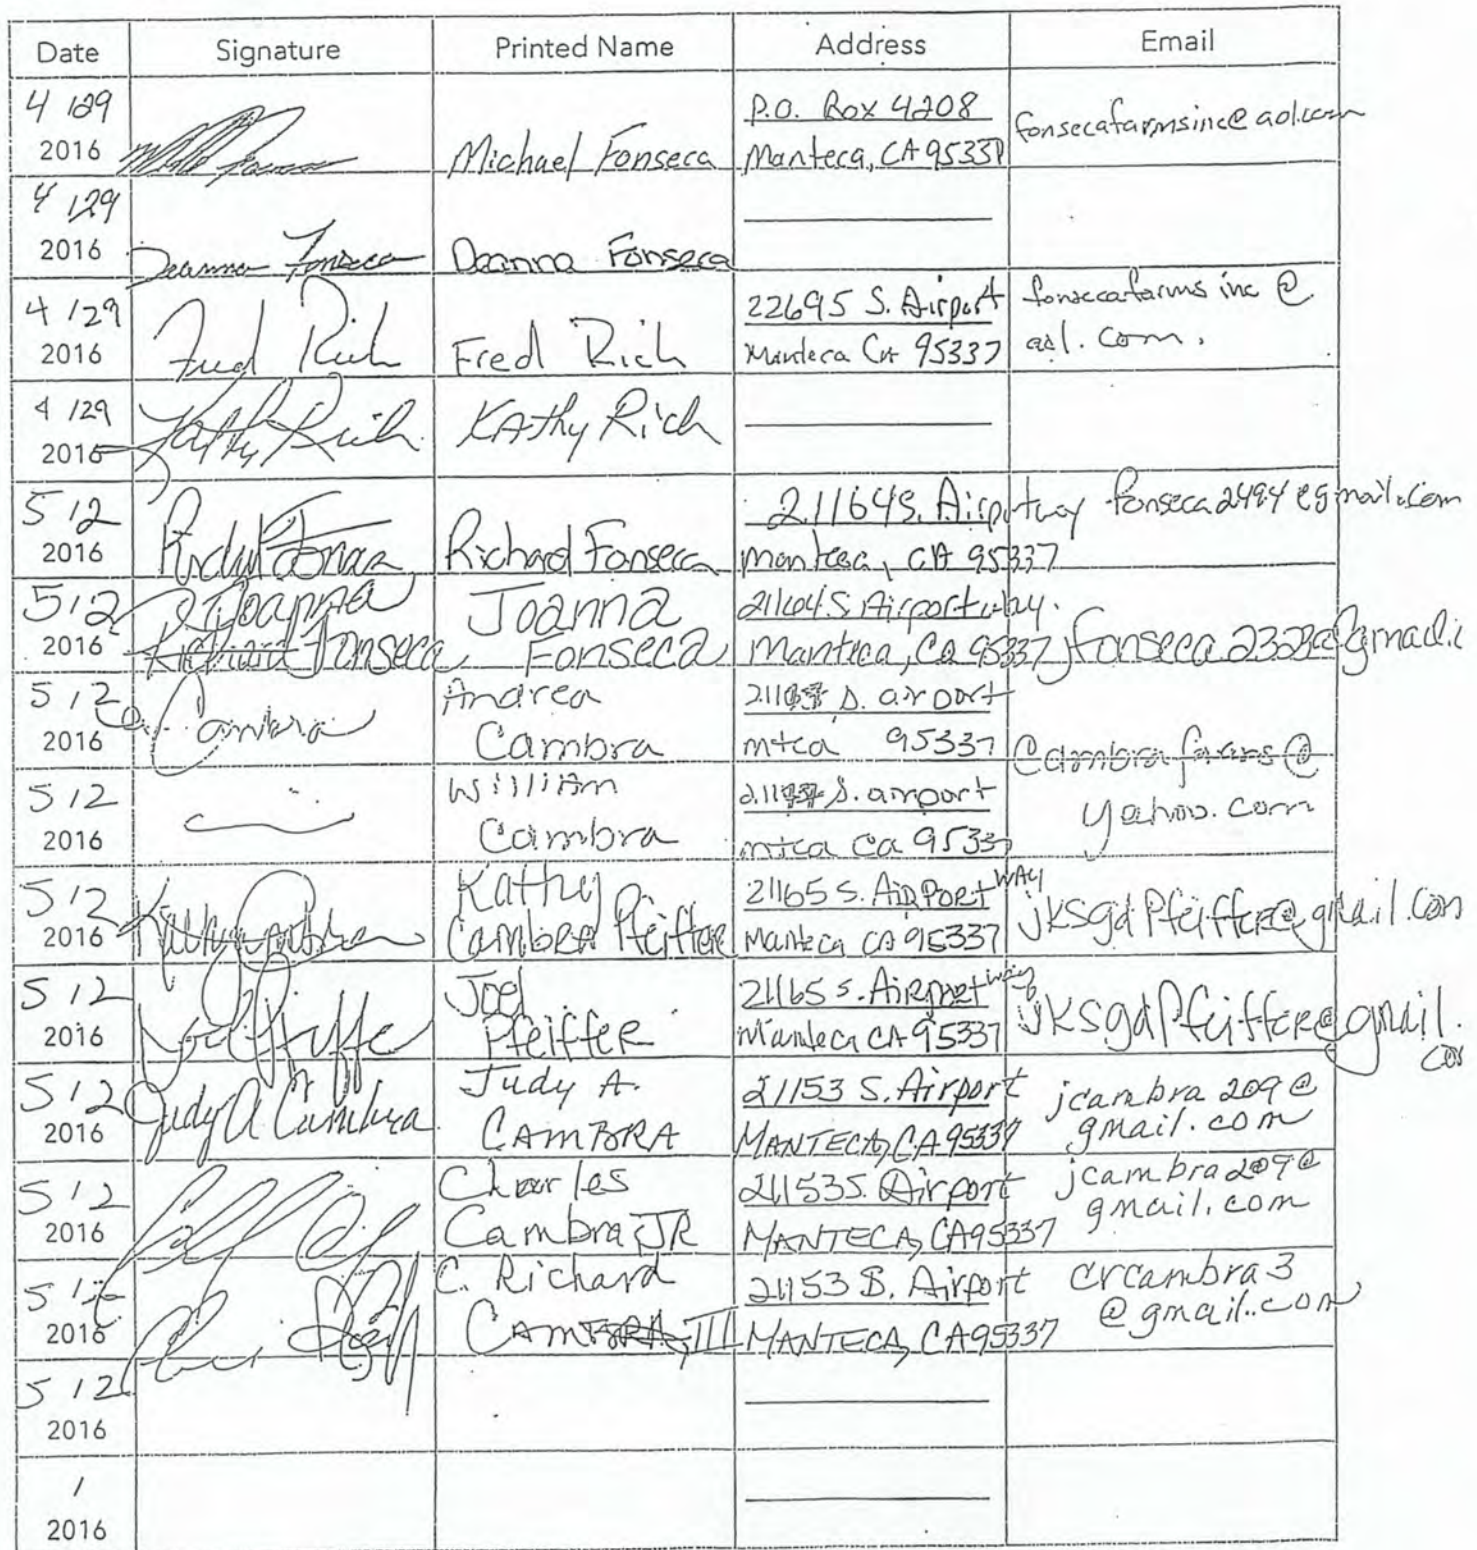 Date Signature Printed Name Address Email
4 / 29
2016
Michael Fonseca
P.O. Box 4208
Manteca, CA 95337
fonsecafarmsinc@aol.com
4 / 29
2016
Deanna Fonseca
Deanna Fonseca
4 / 29
2016
Fred Rich
Fred Rich
22695 S. Airport
Manteca CA 95337
fonsecafarms inc @
aol. com.
4 / 29
2016
Kathy Rich
KAthy Rich
5 / 2
2016
Richard Fonseca
21164 S. Airportway
Manteca, CA 95337
fonseca2494@gmail.com
5 / 2
2016
Joanna
Richard Fonseca
Joanna
Fonseca
21164 S. Airportway.
Manteca, Ca 95337
5 / 2
2016
a. Cambra
Andrea
Cambra
S. airport
mtca 95337
Cambrafarms@
yahoo.com
5 / 2
2016
William
Cambra
S. airport
mtca Ca 95337
5 / 2
2016
Kathy
Cambra Pfeiffer
21165 S. AirPort WAY
Manteca CA 95337
jksgdPfeiffer@gmail.com
5 / 2
2016
Joel Pfeiffer
Joel
Pfeiffer
21165 S. Airport Way
Manteca CA 95337
jksgdPfeiffer@gmail.
com
5 / 2
2016
Judy A Cambra
Judy A.
CAMBRA
21153 S. Airport
MANTECA, CA 95337
jcambra209@
gmail.com
5 / 2
2016
Charles
Cambra, JR
21153 S. Airport
MANTECA, CA 95337
jcambra209@
gmail.com
5 / 2
2016
C. Richard
CAMBRA, III
21153 S. Airport
MANTECA, CA 95337
crcambra3
@gmail.com
5 / 2
2016
/
2016